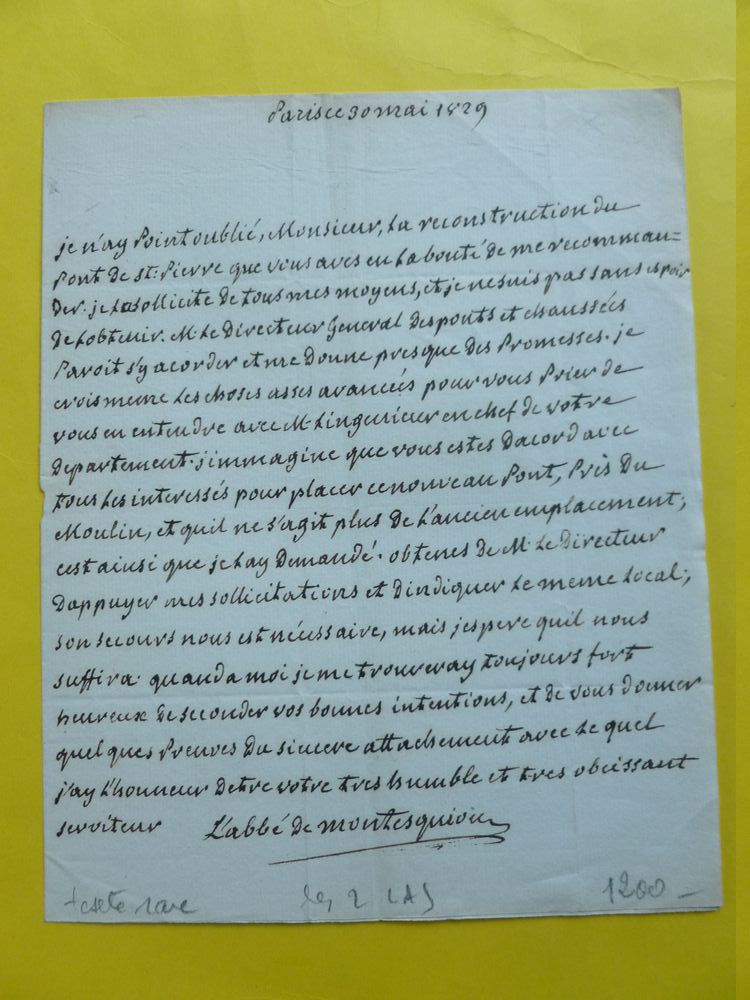 Paris ce 30 mai 1829
je n'ay Point oublié, Monsieur, La reconstruction du
Pont de st. Pierre que vous aves eu La bonté de me recomman=
Der. je La sollicite de tous mes moyens, et je ne suis pas sans espoir
De Lobtenir. M. Le Directeur General des ponts et chaussées
Paroit s'y acorder et me Donne presque Des Promesses. je
crois meme Les choses asses avancées pour vous Prier de
vous en entendre avec M. Lingenieur en chef de votre
Departement. j'immagine que vous estes Dacord avec
tous Les interessés pour placer ce nouveau Pont, Près Du
Moulin, et quil ne s'agit plus de L'ancien emplacement;
cest ainsi que je Lay Demandé. obtenes de M. Le Directeur
Dappuyer mes sollicitations et dindiquer Le meme Local;
son secours nous est nécessaire, mais jespere quil nous
suffira. quand a moi je me trouveray toujours fort
heureux De seconder vos bonnes intentions, et de vous donner
quelques Preuves Du sincere attachement avec Le quel
j'ay L'honneur Detre votre tres humble et tres obeissant
serviteur L'abbé de montesquiou
rare Les 2 LAS 1200 -